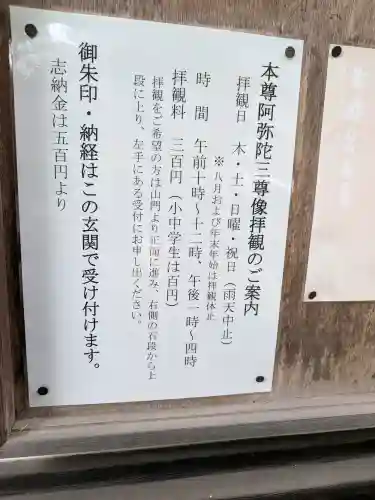 本尊阿弥陀三尊像拝観のご案内
拝観日 木・土・日曜・祝日（雨天中止）
※八月および年末年始は拝観休止
時間 午前十時～十二時、午後一時～四時
拝観料 三百円（小中学生は百円）
拝観をご希望の方は山門より正面に進み、右側の石段から上
段に上り、左手にある受付にお申し出ください。
御朱印・納経はこの玄関で受け付けます。
志納金は五百円より